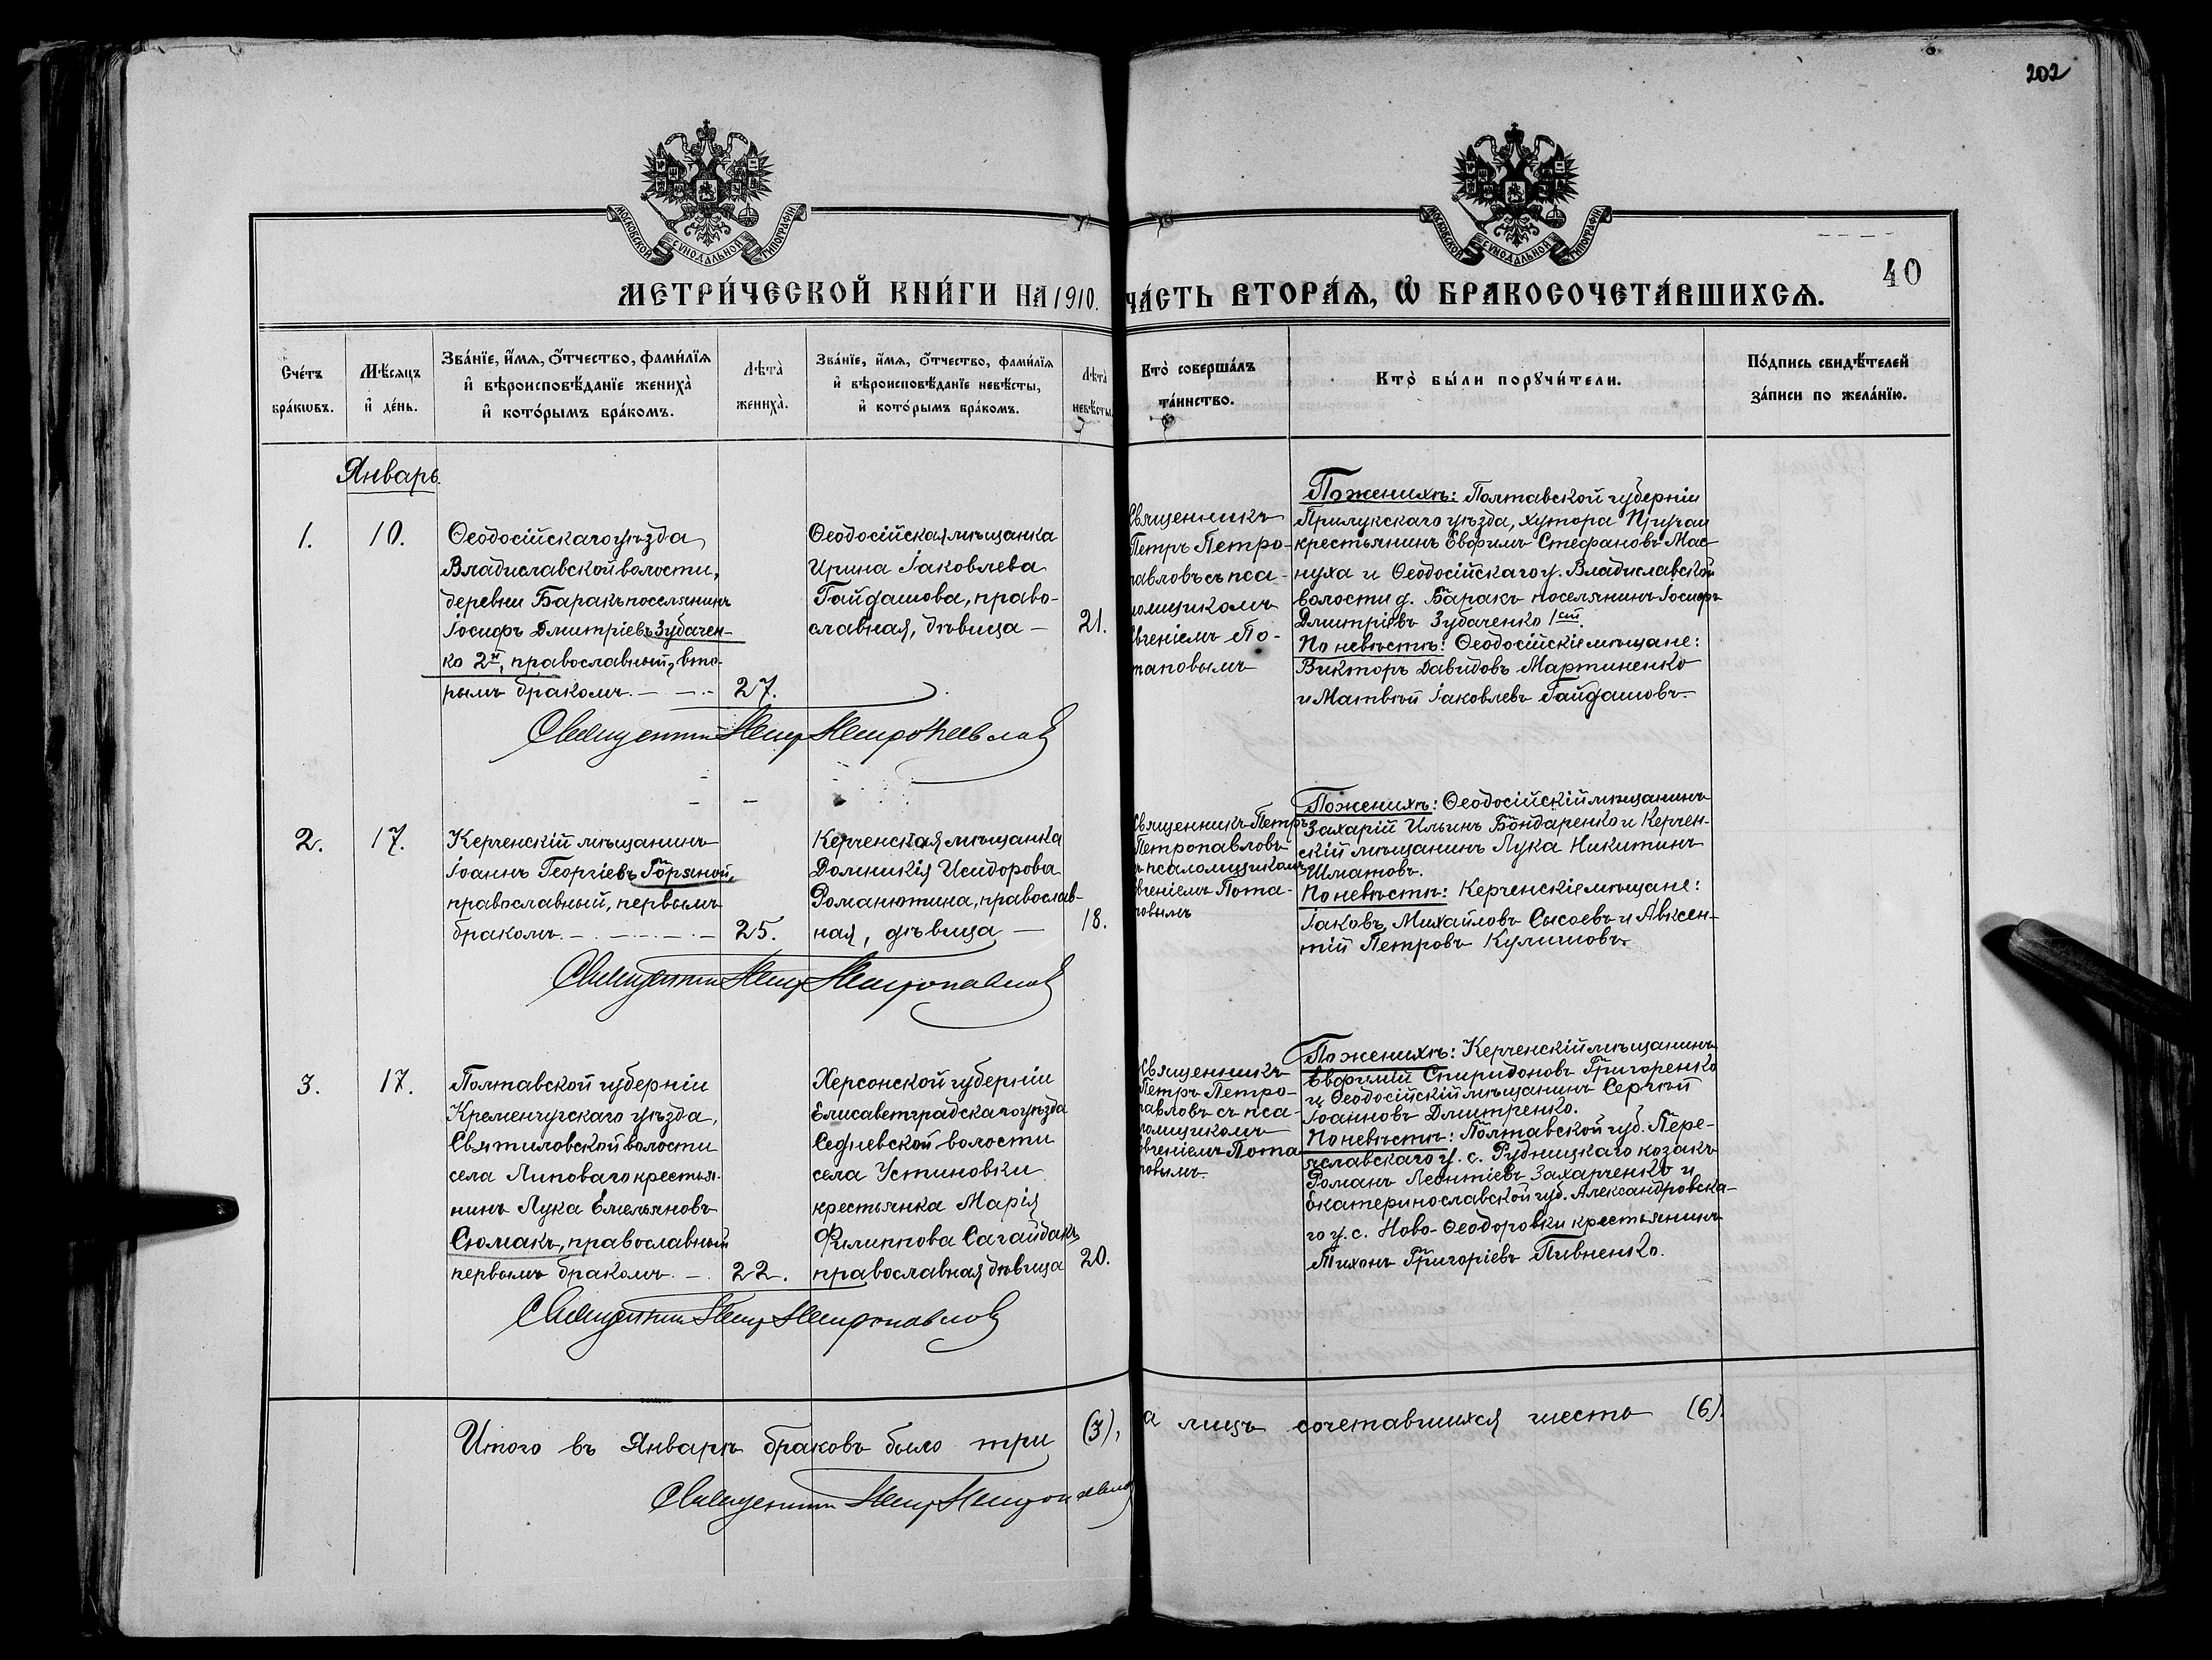 202
МОСКОВСКОЙ СУНОДАЛЬНОЙ ТИПОГРАФІИ
МОСКОВСКОЙ СУНОДАЛЬНОЙ ТИПОГРАФІИ
МЕТРИ́ЧЕСКОЙ КНИ́ГИ НА 1910. ЧА́СТЬ ВТОРА́Ѧ, Ѽ БРАКОСОЧЕТА́ВШИХСѦ.
40
Сче́тъ
бра́кѡвъ.
Мѣ́сѧцъ
и҆ де́нь.
Зва́нїе, и҆́мѧ, ѻ҆́тчество, фами́лїѧ
и҆ вѣроисповѣ́данїе жениха̀
и҆ кото́рымъ бра́комъ.
Лѣта̀
жениха̀.
Зва́нїе, и҆́мѧ, ѻ҆́тчество, фами́лїѧ
и҆ вѣроисповѣ́данїе невѣ́сты,
и҆ кото́рымъ бра́комъ.
Лѣта̀
невѣ́сты
Кто̀ соверша́лъ
та́инство.
Кто̀ бы́ли порꙋчи́тели.
По́дпись свидѣ́телей
за́писи по жела́нїю.
Январь.
1.
10.
Ѳеодосійскаго уѣзда
Владиславской волости,
деревни Баракъ поселянинъ
Іосифъ Дмитріевъ Зубачен-
ко 2й, православный, вто-
рымъ бракомъ. — —
27.
Ѳеодосійская мѣщанка
Ирина Іаковлева
Гайдашова, право-
славная, дѣвица —
21.
Священникъ Петръ Петропавлов
Священникъ
Петръ Петро-
павловъ съ пса-
ломщикомъ
Евгеніемъ По-
таповымъ
По женихѣ: Полтавской губерніи
Прилукскаго уѣзда, хутора
крестьянинъ Евфимъ Стефановъ Мас-
нуха и Ѳеодосійскаго у. Владиславской
волости д. Баракъ поселянинъ Іосифъ
Дмитріевъ Зубаченко 1ый.
По невѣстѣ: Ѳеодосійскіе мѣщане:
Викторъ Давидовъ Мартиненко
и Матвѣй Іаковлевъ Гайдашовъ.
2.
17.
Керченскій мѣщанинъ
Іоаннъ Георгіевъ Горяной,
православный, первымъ
бракомъ. —
25.
Керченская мѣщанка
Домникія Исидорова
Романютина, православ-
ная, дѣвица —
18.
Священникъ Петръ Петропавлов
Священникъ Петръ
Петропавловъ
съ псаломщикомъ
Евгеніемъ Пота-
повымъ
По женихѣ: Ѳеодосійскій мѣщанинъ
Захарій Ильинъ Бондаренко и Керчен-
скій мѣщанинъ Лука Никитинъ
Шматовъ.
По невѣстѣ: Керченскіе мѣщане:
Іаковъ Михайловъ Сысоевъ и Авксен-
тій Петровъ Кулишовъ.
3.
17.
Полтавской губерніи
Кременчугскаго уѣзда,
Святиловской волости
села Липоваго крестья-
нинъ Лука Емельяновъ
Сюмакъ, православный
первымъ бракомъ. —
22.
Херсонской губерніи
Елисаветградскаго уѣзда
Седневской волости
села Устиновки
крестьянка Марія
Филиппова Сагайдакъ
православная дѣвица
20.
Священникъ Петръ Петропавлов
Священникъ
Петръ Петро-
павловъ съ пса-
ломщикомъ
Евгеніемъ Пота
повымъ.
По женихѣ: Керченскій мѣщанинъ
Евфимій Спиридоновъ Григоренко
и Ѳеодосійскій мѣщанинъ Сергѣй
Іоанновъ Дмитренко.
По невѣстѣ: Полтавской губ. Пере-
яславскаго у. с. Рудницкаго козакъ
Романъ Леонтіевъ Захарченко и
Екатеринославской губ. Александровска-
го у. с. Ново-Ѳеодоровки крестьянинъ
Тихонъ Григоріевъ Пивненко.
Итого въ Январѣ браковъ было три (3), а лицъ сочетавшихся шесть (6).
Священникъ Петръ Петропавлов